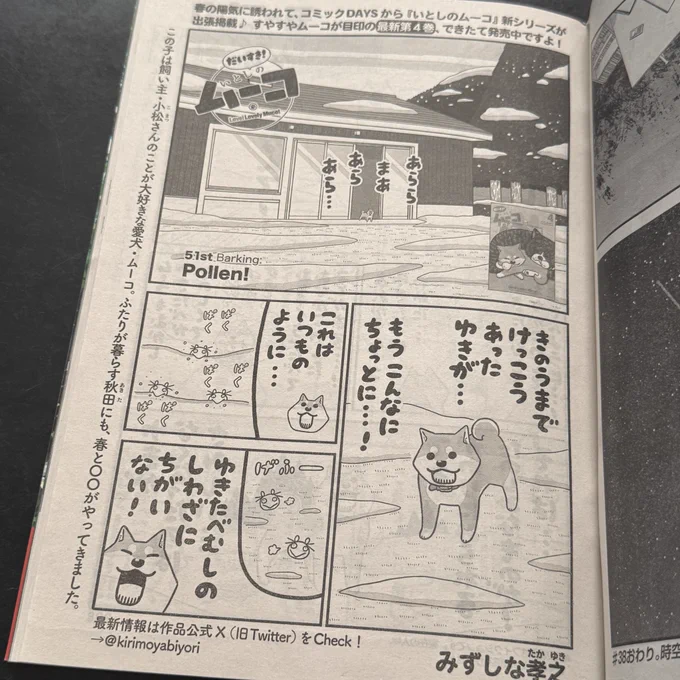 春の陽気に誘われて、コミックDAYSから『いとしのムーコ』新シリーズが
出張掲載♪ すやすやムーコが目印の最新第4巻、できたて発売中ですよ!
この子は飼い主・小松さんのことが大好きな愛犬・ムーコ。ふたりが暮らす秋田にも、春と〇〇がやってきました。
だいすき!
いとしの
ムーコ
あらら
まあ
あら
あら…
51st Barking:
Pollen!
きのうまで
けっこう
あった
ゆきが…
もうこんなに
ちょっとに…!
これは
いつもの
ように…
ぱく
ぱく
ぱく
ぱく
ぱく
ぱく
げふー
ゆきたべむしの
しわざに
ちがい
ない!
最新情報は作品公式X(旧Twitter)をCheck!
→@kirimoyabiyori
みずしな孝之
#38おわり。時空